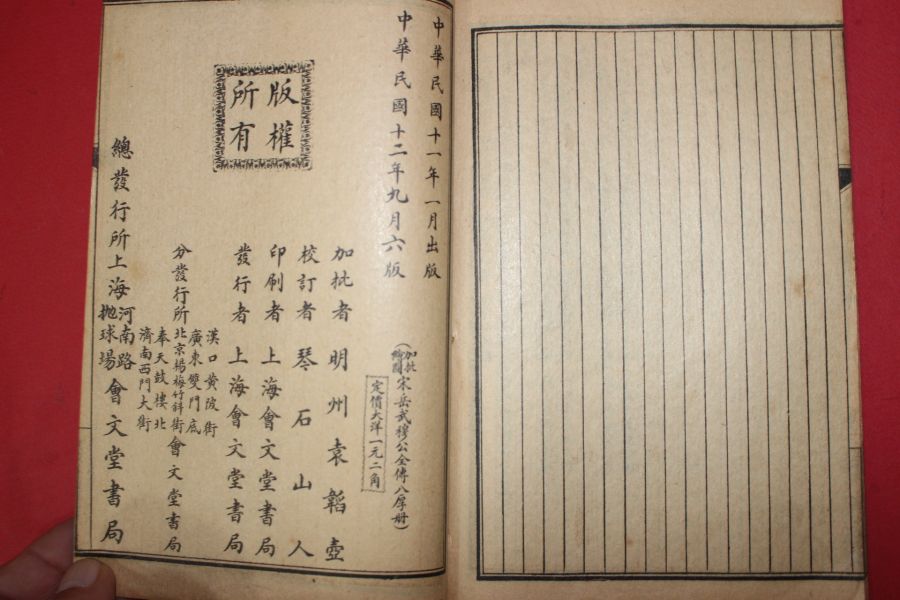 中華民國十一年一月出版
中華民國十二年九月六版
(加批繪圖宋岳武穆公全傳八厚册)
定價大洋一元二角
加批者 明州袁韜壺
校訂者 琴石山人
印刷者 上海會文堂書局
發行者 上海會文堂書局
版權
所有
分發行所
漢口黃陂街
廣東雙門底
北京楊梅竹斜街
奉天鼓樓北
濟南西門大街
會文堂書局
總發行所上海
河南路
拋球場
會文堂書局